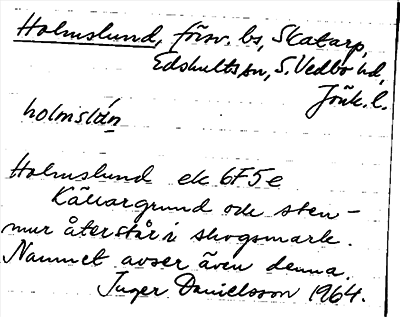 Holmslund, försv. bs, Skatarp,
Edshults sn, S. Vedbo hd,
Jönk. l.
holmslún
Holmslund ek 6F5e
Källargrund och sten-
mur återstår i skogsmark.
Namnet avser även denna.
Inger Danielsson 1964.